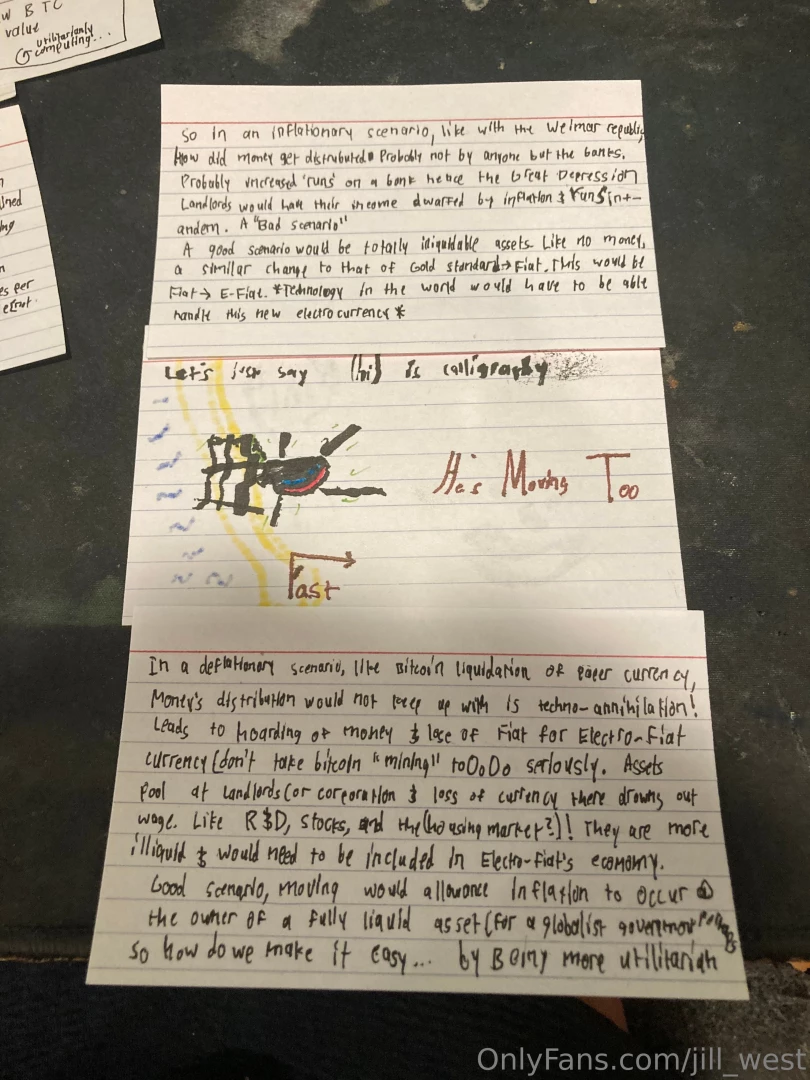 w BTC
value
utilitarianly
computing...
ined
ing
es per
effort.
So in an inflationary scenario, like with the Weimar republic,
How did money get distributed? Probably not by anyone but the banks.
Probably increased 'runs' on a bank hence the Great Depression
Landlords would have their income dwarfed by inflation & runs in t-
andem. A "Bad scenario"
A good scenario would be totally iniquidable assets. Like no money,
a similar change to that of Gold standard → Fiat. This would be
Fiat → E-Fiat. *Technology in the world would have to be able
handle this new electrocurrency*
Let's just say (hi) is calligraphy
Has Moving Too
Fast
In a deflationary scenario, like Bitcoin liquidation of paper currency,
Money's distribution would not keep up with is techno-annihilation!
Leads to hoarding of money & lose of Fiat for Electro-Fiat
currency (don't take bitcoin "mining" toOoDo seriously. Assets
Pool at landlords (or corporation & loss of currency there drowns out
wage. Like R&D, stocks, and the (housing market?)! They are more
illiquid & would need to be included in Electro-Fiat's economy.
Good scenario, moving would allowance inflation to occur @
the owner of a fully liquid asset (for a globalist government perhaps
so how do we make it easy... by Being more utilitarian
OnlyFans.com/jill_west